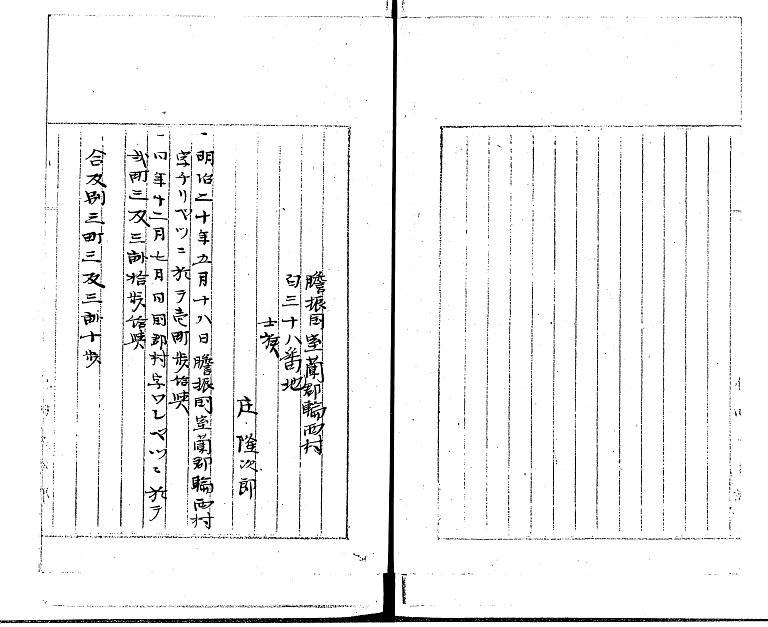 膽振国室蘭郡輪西村
百三十八番地
士族
庄 隆次郎
一明治二十年五月十八日膽振国室蘭郡輪西村
字チリヘツニ於テ壱町歩給與
一同年十二月七日同国同郡村字ワシヘツニ於テ
弐町三反三畝拾歩給與
合反別三町三反三畝十歩